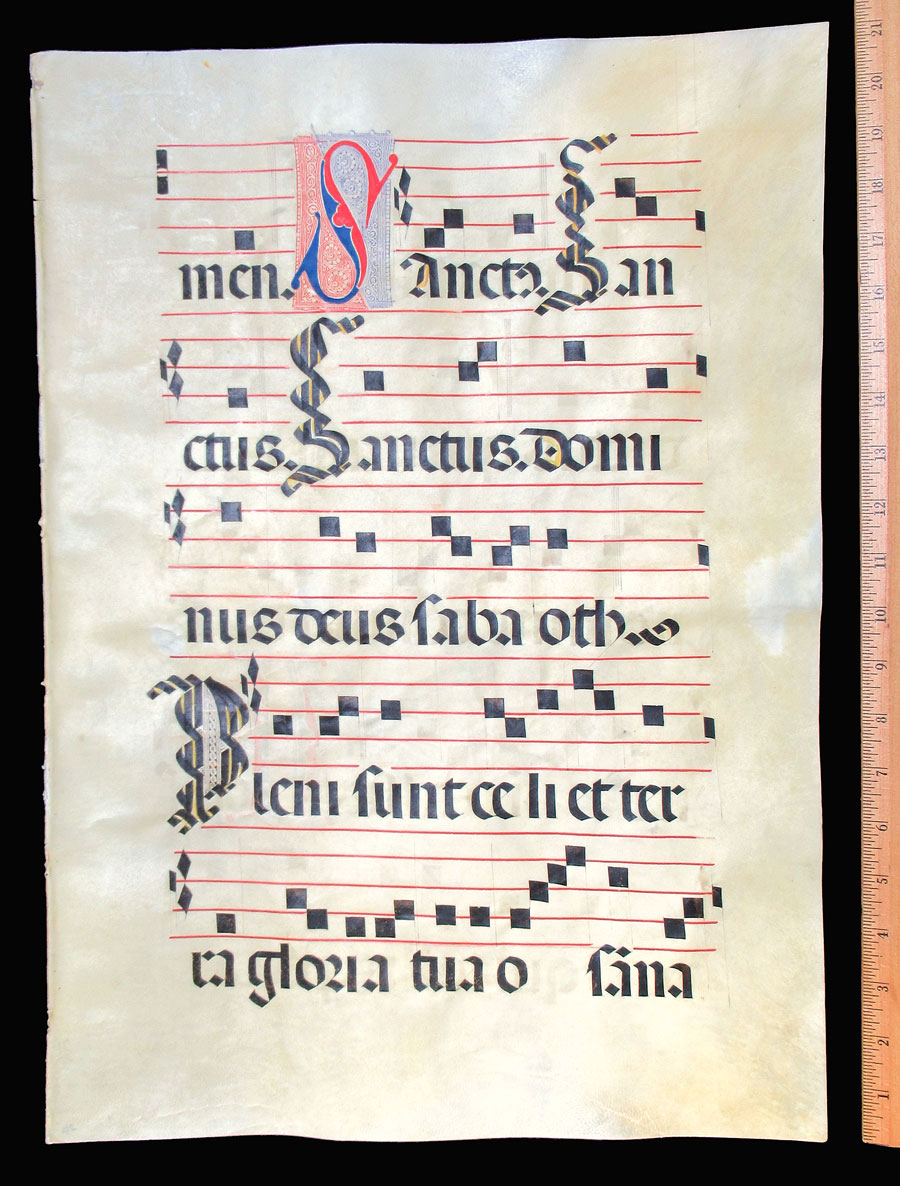 men. SAnctꝰ. San
ctus. Sanctus. Domi
nus deus saba oth
Pleni sunt ce li et ter
ra gloria tua o sāna
1 2 3 4 5 6 7 8 9 10 11 12 13 14 15 16 17 18 19 20 21